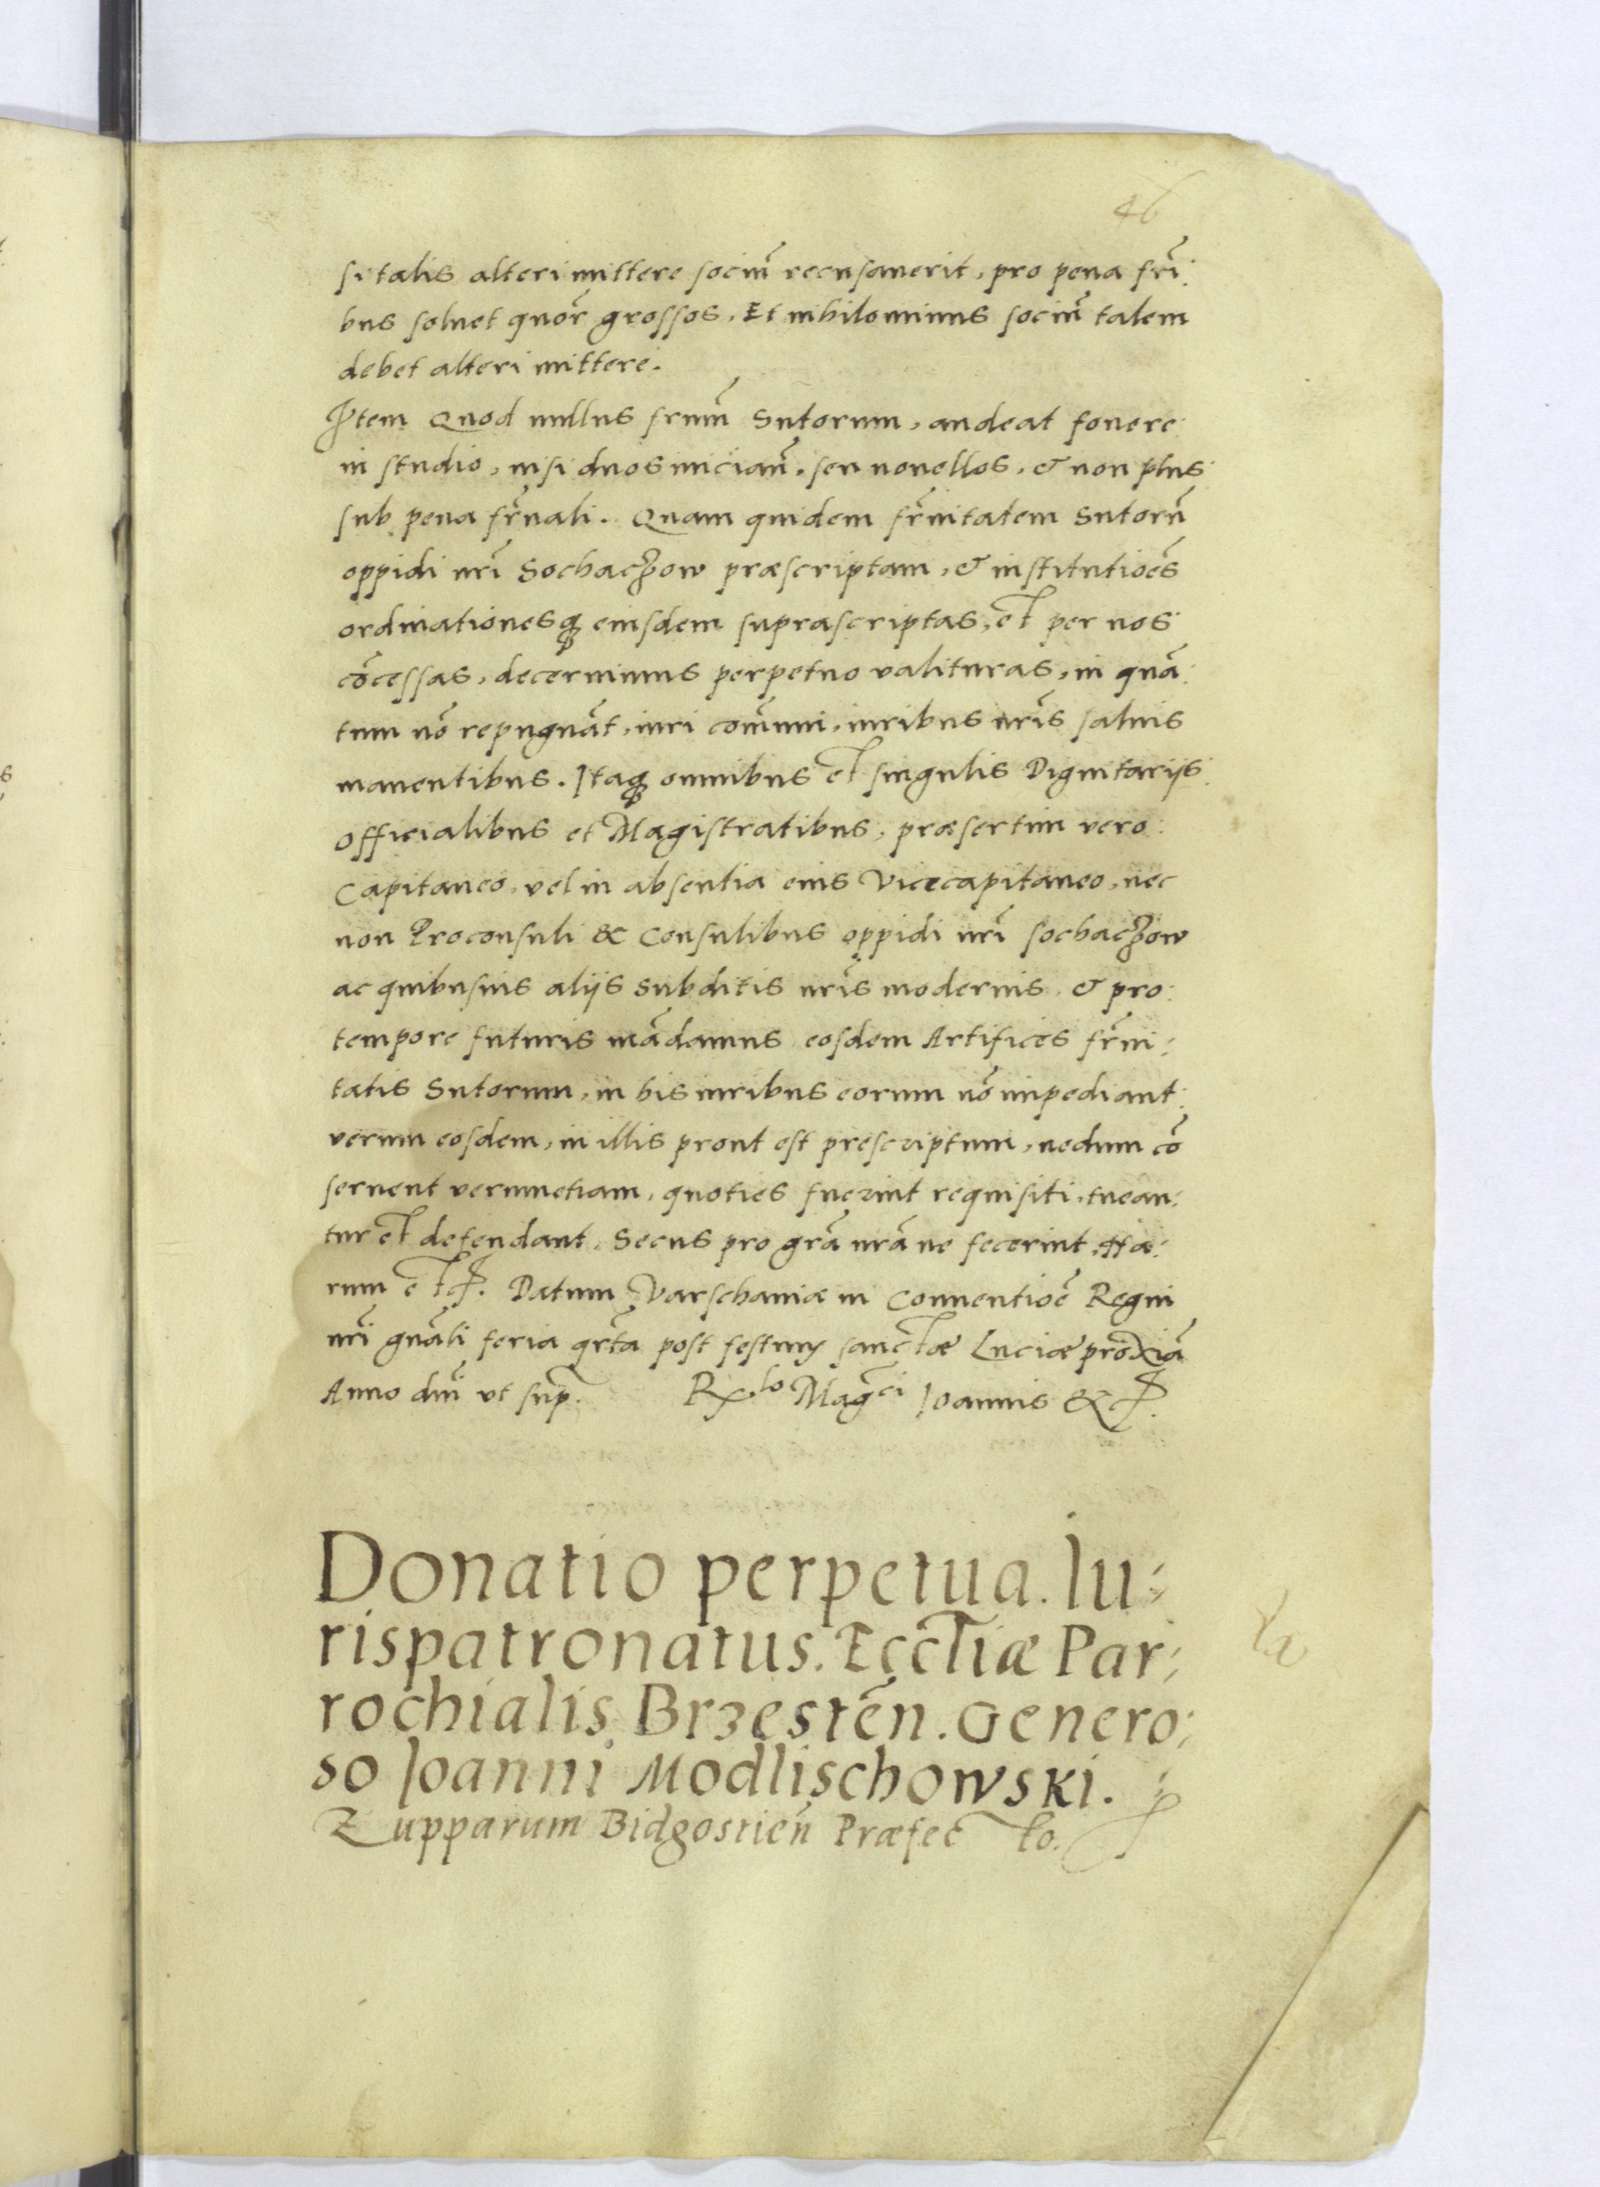 46
si talis alteri mittere sociũ recusauerit, pro pena frĩ:
bus soluet quor̃ grossos. Et nihilominus sociũ talem
debet alteri mittere.
Item Quod nullus frum̃ Sutorum, audeat fouere
in studio, nisi duos inician̄, seu nouellos, & non plus
sub pena fr̃nali. Quam quidem fr̃nitatem Sutorũ
oppidi nr̃i Sochaczow præscriptam, & institutioēs
ordinationesq; eiusdem suprascriptas, et per nos
cõcessas, decernimus perpetuo valituras, in quã:
tum nõ repugnãt, iuri com̃uni, iuribus nr̃is saluis
manentibus. Itaq; omnibus et singulis Dignitarijs
Officialibus et Magistratibus, præsertim vero
Capitaneo, vel in absentia eius Vicecapitaneo, nec
non Proconsuli & Consulibus oppidi nr̃i Sochaczow
ac quibusuis alijs subditis nr̃is modernis, & pro
tempore futuris mãdamus eosdem Artifices fr̃ni:
tatis Sutorum, in his iuribus eorum nõ impediant
verum eosdem, in illis prout est prescriptum, nedum cõ
seruent verumetiam, quoties fuerint requisiti, tuean:
tur et defendant. Secus pro grã nrã ne fecerint. Ha:
rum etc. Datum Varschauiæ in Conuentiōe Regni
nr̃i gnãli feria qrta post festum sanctæ Luciæ proxiã
Anno dñi vt sup. Rx.lo Mag.ci Ioannis &c.
Donatio perpetua. Iu:
rispatronatus. Eccliæ Par:
rochialis Brzesteñ. Genero:
so Ioanni Modlischowski.
Zupparum Bidgostieñ Præfecto.